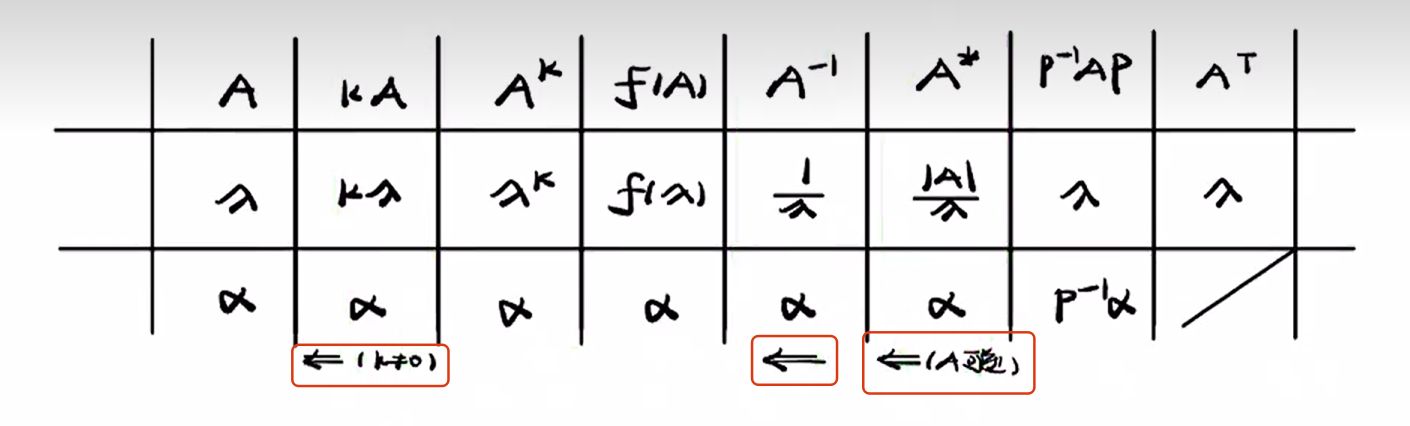 A kA A^k f(A) A^-1 A* P^-1AP A^T
λ kλ λ^k f(λ) 1/λ |A|/λ λ λ
α α α α α α P^-1α
⇐ (k≠0) ⇐ ⇐ (A可逆)